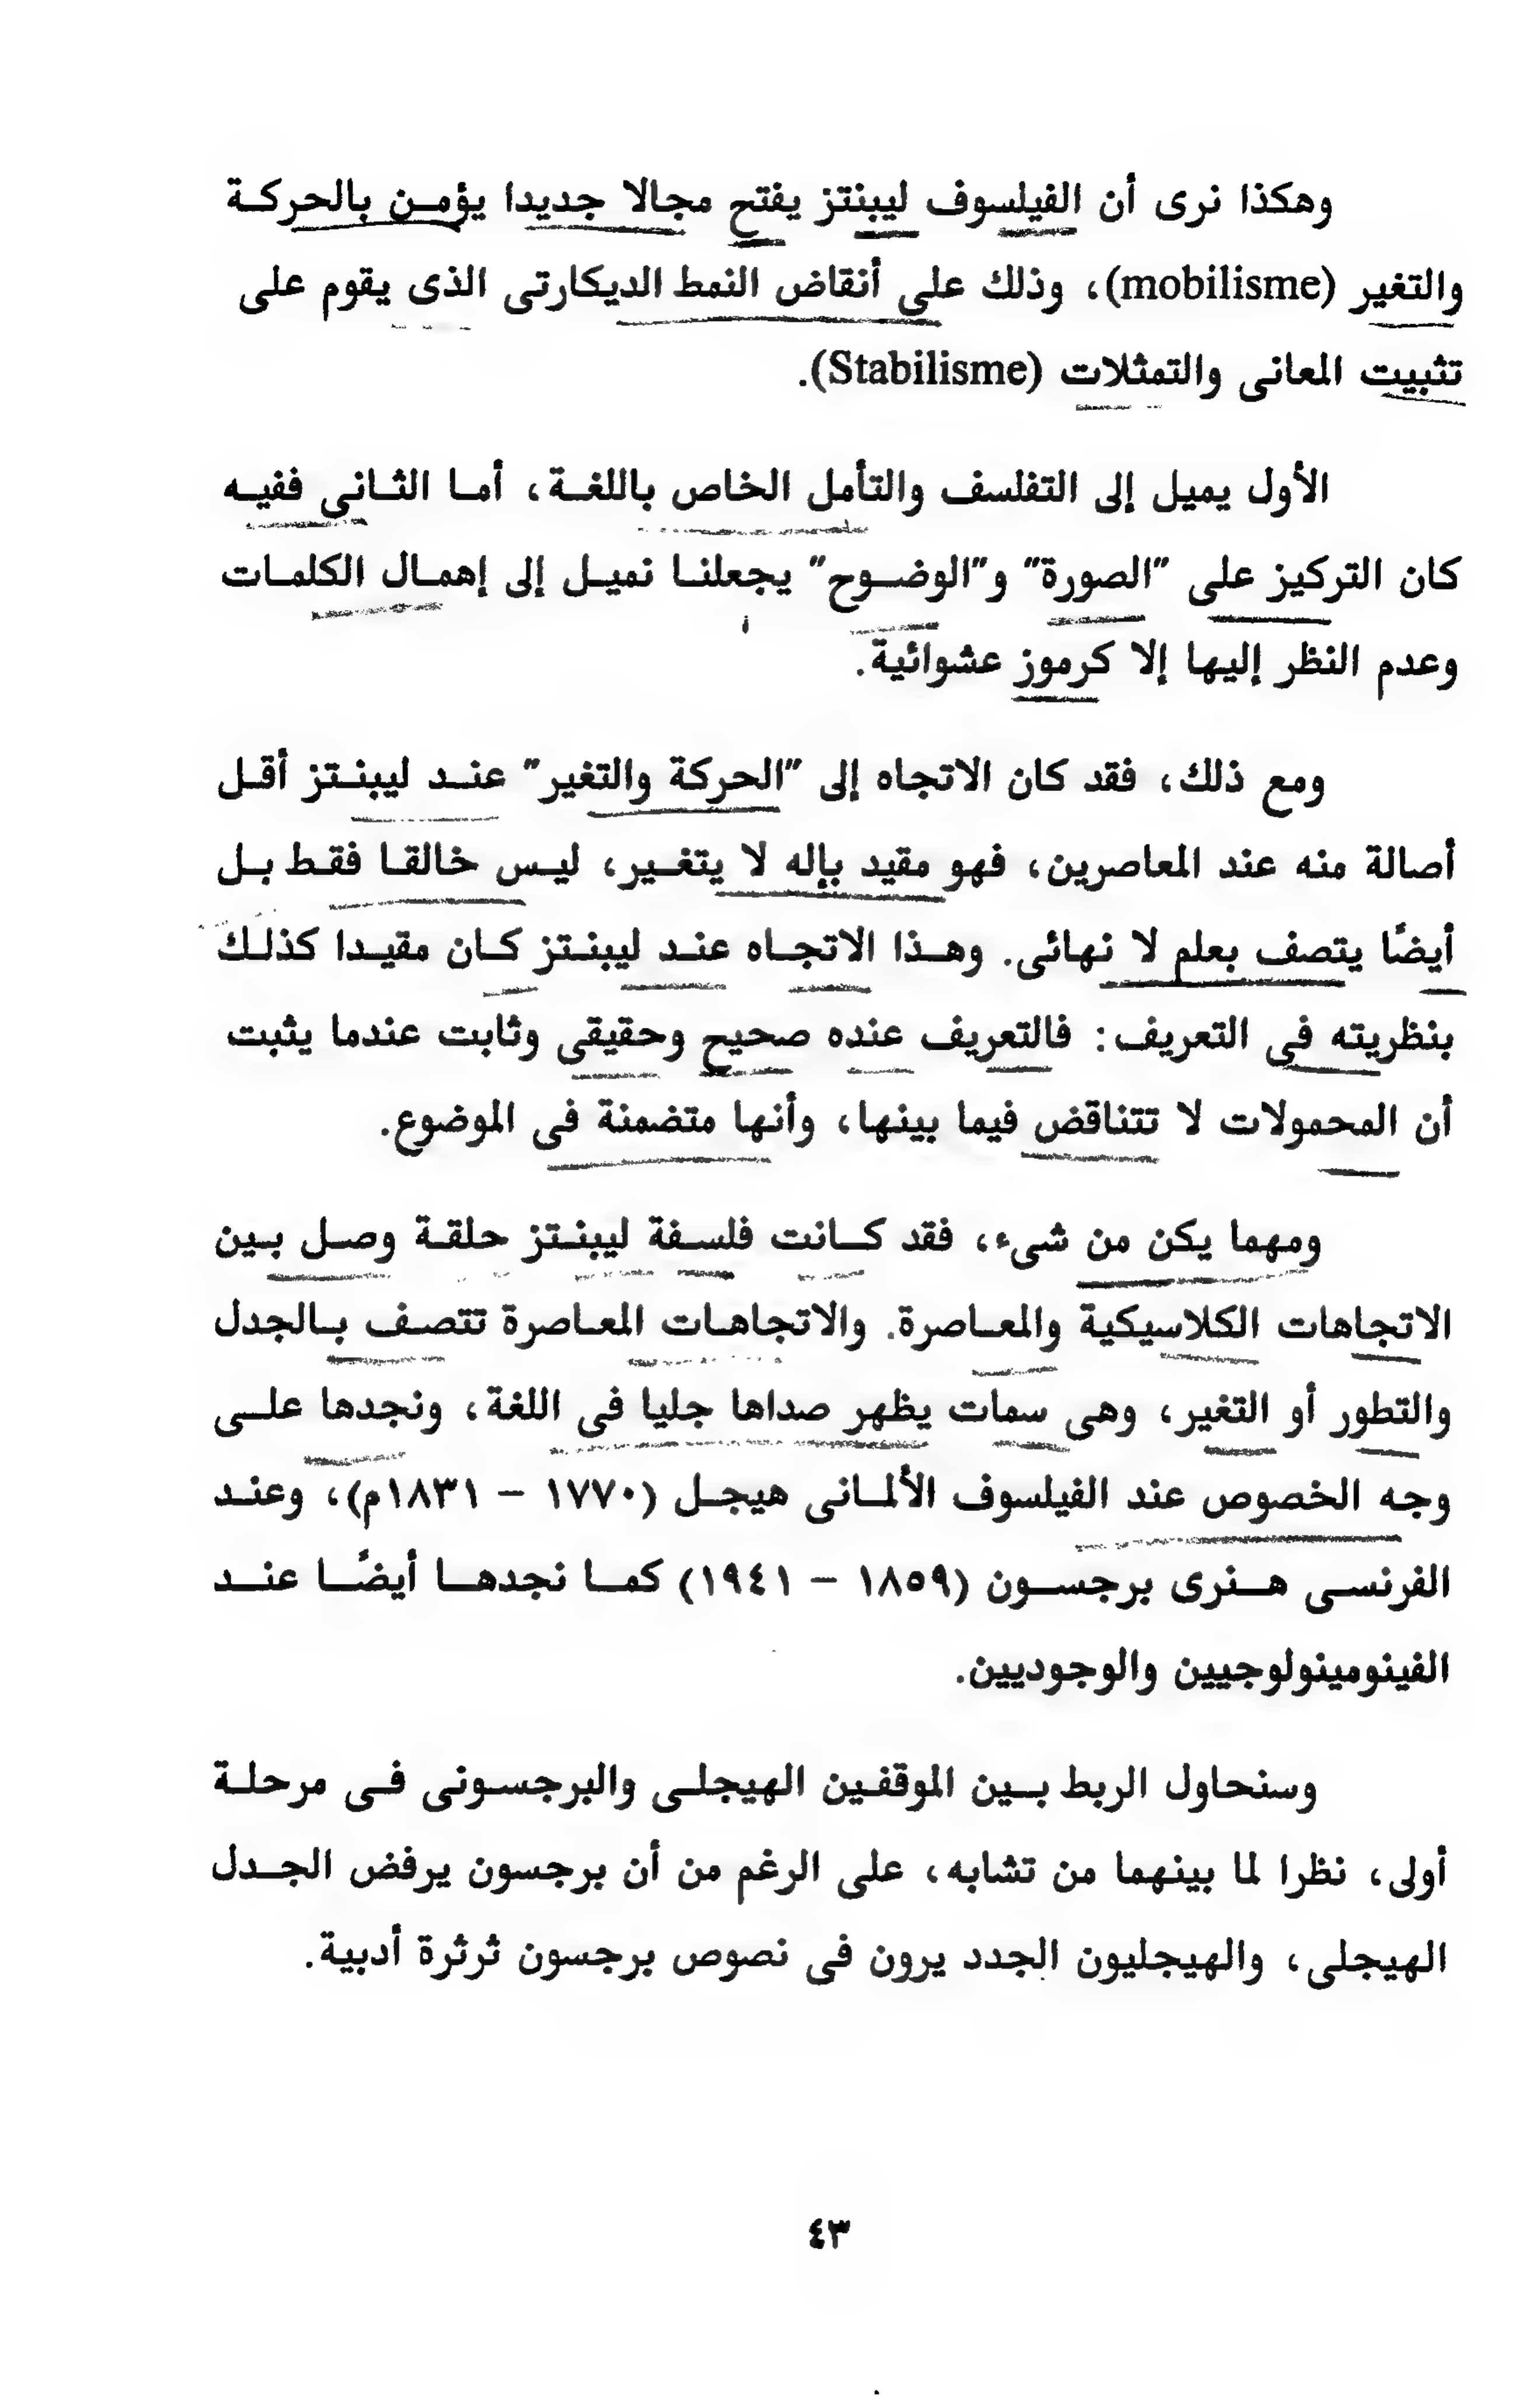 وهكذا نرى أن الفيلسوف ليبنتز يفتح مجالا جديدا يؤمن بالحركة
والتغير (mobilisme)، وذلك على أنقاض النمط الديكارتى الذى يقوم على
تثبيت المعانى والتمثلات (Stabilisme).
الأول يميل إلى التفلسف والتأمل الخاص باللغة، أما الثانى ففيه
كان التركيز على "الصورة" و"الوضوح" يجعلنا نميل إلى إهمال الكلمات
وعدم النظر إليها إلا كرموز عشوائية.
ومع ذلك، فقد كان الاتجاه إلى "الحركة والتغير" عند ليبنتز أقل
أصالة منه عند المعاصرين، فهو مقيد بإله لا يتغير، ليس خالقا فقط بل
أيضًا يتصف بعلم لا نهائى. وهذا الاتجاه عند ليبنتز كان مقيدا كذلك
بنظريته فى التعريف: فالتعريف عنده صحيح وحقيقى وثابت عندما يثبت
أن المحمولات لا تتناقض فيما بينها، وأنها متضمنة فى الموضوع.
ومهما يكن من شىء، فقد كانت فلسفة ليبنتز حلقة وصل بين
الاتجاهات الكلاسيكية والمعاصرة. والاتجاهات المعاصرة تتصف بالجدل
والتطور أو التغير، وهى سمات يظهر صداها جليا فى اللغة، ونجدها على
وجه الخصوص عند الفيلسوف الألمانى هيجل (١٧٧٠ – ١٨٣١م)، وعند
الفرنسى هنرى برجسون (١٨٥٩ – ١٩٤١) كما نجدها أيضًا عند
الفينومينولوجيين والوجوديين.
وسنحاول الربط بين الموقفين الهيجلى والبرجسونى فى مرحلة
أولى، نظرا لما بينهما من تشابه، على الرغم من أن برجسون يرفض الجدل
الهيجلى، والهيجليون الجدد يرون فى نصوص برجسون ثرثرة أدبية.
٤٣